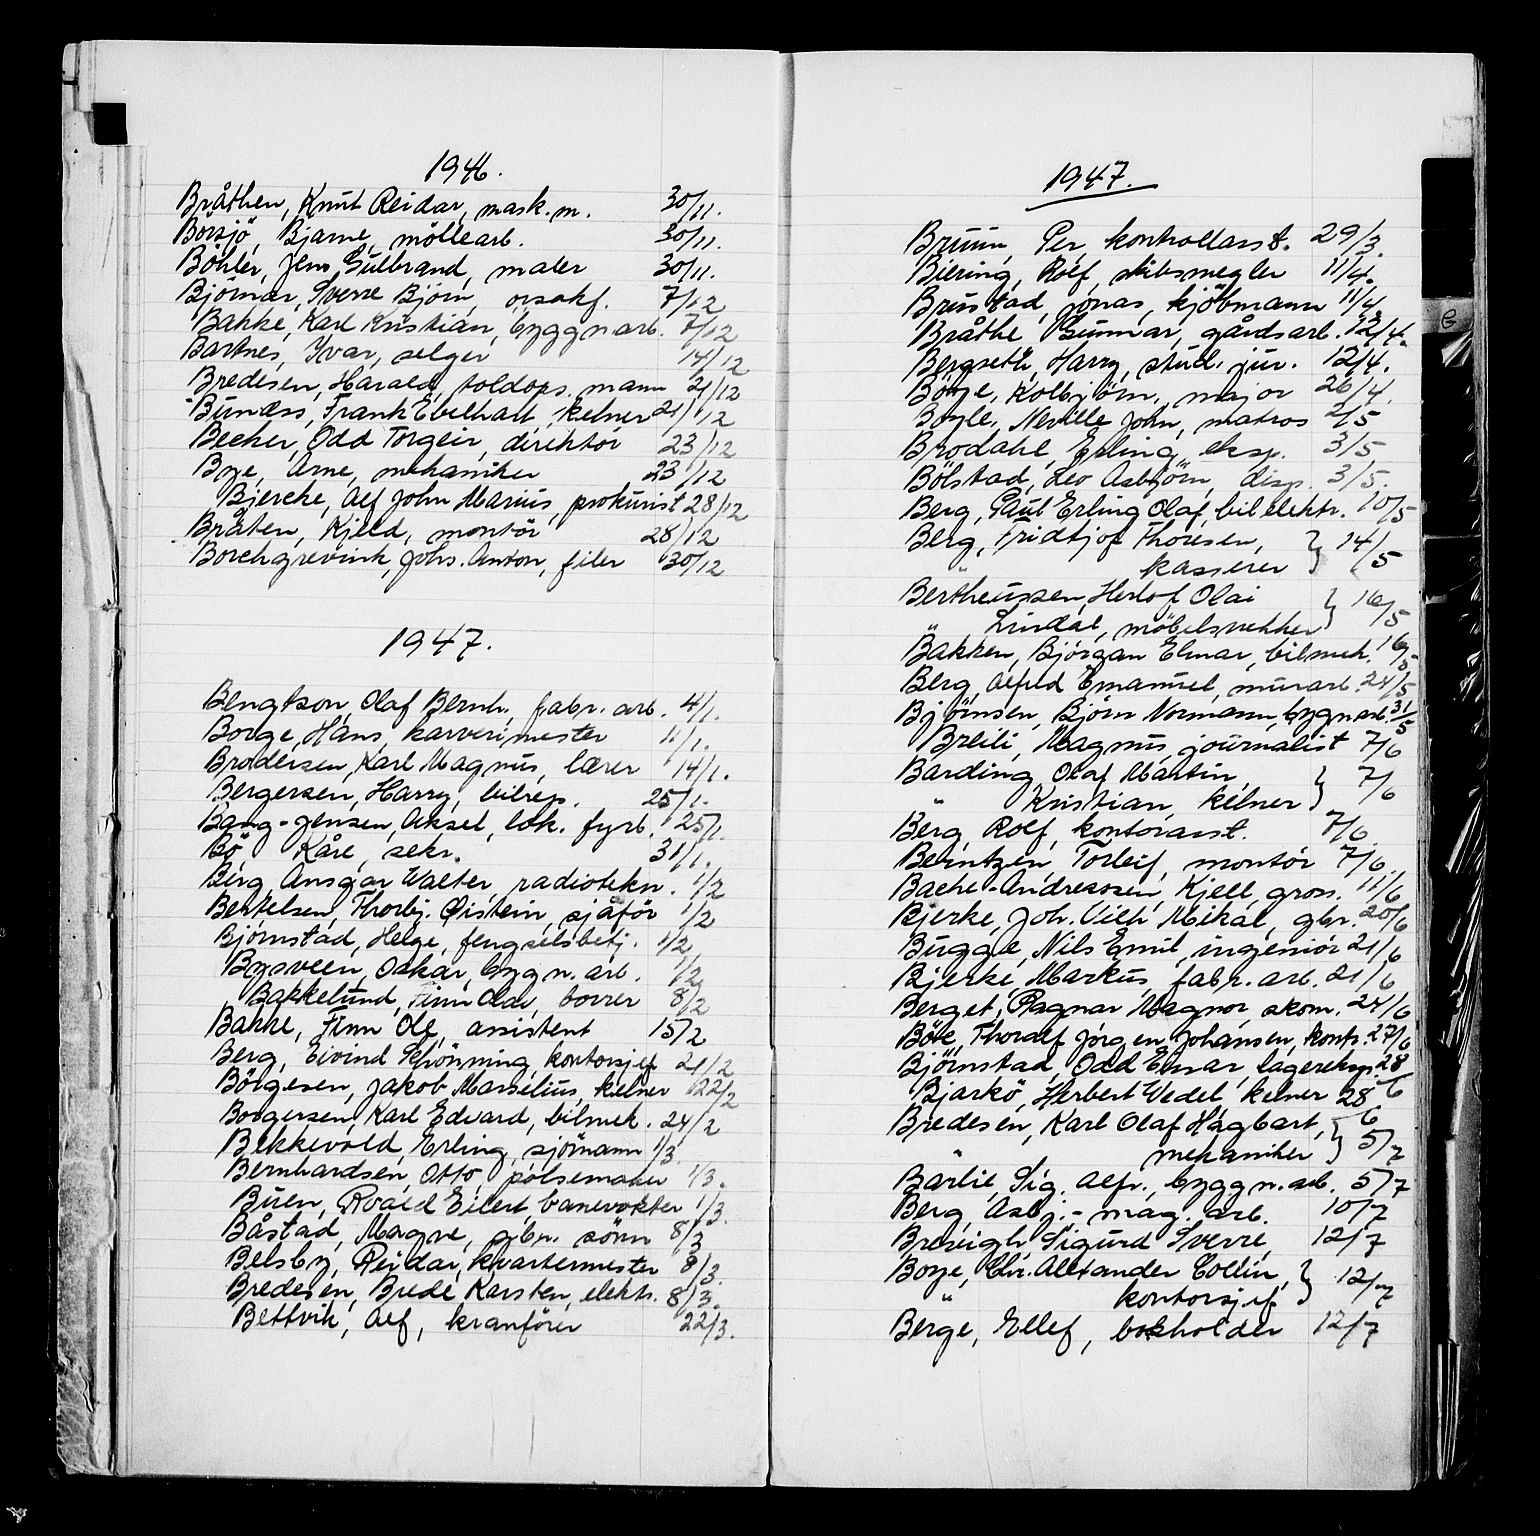 1946.
Bråthen, Knut Reidar, mask.m. 30/11.
Borsjö, Bjarne, möllearb. 30/11.
Böhler, Jens Gulbrand, maler 30/11.
Bjornar, Sverre Björn, orsakf. 7/12
Bakke, Karl Kristian, byggn arb. 7/12
Bartnes, Ivar, selger 14/12
Bredesen, Harald, toldops. mann 21/12
Bundss, Frank Evelhart, kelner 21/12
Becher, Odd Torgeir, direktör 23/12
Bye, Arne, mekaniker 23/12
Bjercke, Alf John Marius, prokurist 28/12
Bråten, Kjeld, montör 28/12
Borchgrevink, Johs. Anton, filer 30/12
1947.
Bengtson, Olaf Bernh., fabr. arb. 4/1.
Borge, Hans, karverimester 11/1.
Brodersen, Karl Magnus, lærer 14/1.
Bergersen, Harry, bilrep. 25/1.
Bang-Jensen, Aksel, lok. fyrb. 25/1.
Bö, Kåre, sekr. 31/1.
Berg, Ansgar Walter, radiotekn. 1/2
Bertelsen, Thorbj. Øistein, sjåför 1/2
Björnstad, Helge, fengselsbetj. 1/2
Bysveen, Oskar, bygn. arb. 1/2
Bakkelund, Finn Odd, borrer 8/2
Bakke, Finn Ole, assistent 15/2
Berg, Eivind Schönning, kontorsjef 21/2
Börgesen, Jakob Marselius, kelner 22/2
Borgersen, Karl Edvard, bilmek. 24/2
Bekkevold, Erling, sjömann 1/3
Bernhardsen, Otto, pölsemaker 1/3.
Buen, Roald Eilert, banevokter 1/3
Båstad, Magne, gbr. sönn 8/3
Belsby, Reidar, kvartermester 8/3.
Bredesen, Brede Karsten, elektr. 8/3.
Bettvik, Alf, kranförer 22/3.
1947.
Bruun, Per, kontrollasst. 29/3.
Biering, Rolf, skibsmegler 11/4.
Brustad, Jonas, kjöbmann 11/4
Bråthe Gunnar, gårdsarb. 12/4.
Bergseth, Harry, stud. jur. 12/4.
Börge, Kolbjörn, major 26/4.
Boyle, Neville John, matros 2/5
Brodahl, Erling, eksp. 3/5
Bölstad, Leo Asbjörn, disp. 3/5.
Berg, Paul Erling Olaf, bilelektr. 10/5
Berg, Fridtjof Thoresen, } 14/5
" kasserer
Bertheussen, Herlof Olai } 16/5
" Lindal, möbelsnekker
Bakken, Björgan Elmar, bilmek. 16/5
Berg, Alfred Emanuel, murarb. 24/5
Björnsen, Björn Normann, bygn arb. 31/5
Breili, Magnus, journalist 7/6
Barding, Olaf Martin, } 7/6
" Kristian, kelner
Berg, Rolf, kontorasst. 7/6
Berntzen, Torleif, montör 7/6
Bache-Andreassen, Kjell, gross. 11/6
Bjerke, Joh. Vilh. Mikal, gbr. 20/6
Bugge, Nils Emil, ingeniör 21/6
Bjerke, Markus, fabr. arb. 21/6
Berget, Ragnar Magnor, skom. 24/6
Böe, Thoralf Jörgen Johansen, kontr. 27/6
Björnstad, Odd Einar, lagereksp. 28/6
Bjarkö, Herbert Wedel, kelner 28/6
Bredesen, Karl Olaf Hagbart, } 5/7
" mekaniker
Bærlie, Sig. Alfr., byggn. arb. 5/7
Berg, Asbj. - mag. arb. 10/7
Breveigh, Sigurd Sverre, 12/7
Boye, Chr. Alexander Collin, } 12/7
" kontorsjef
Berge, Ellef, bokholder 12/7
B